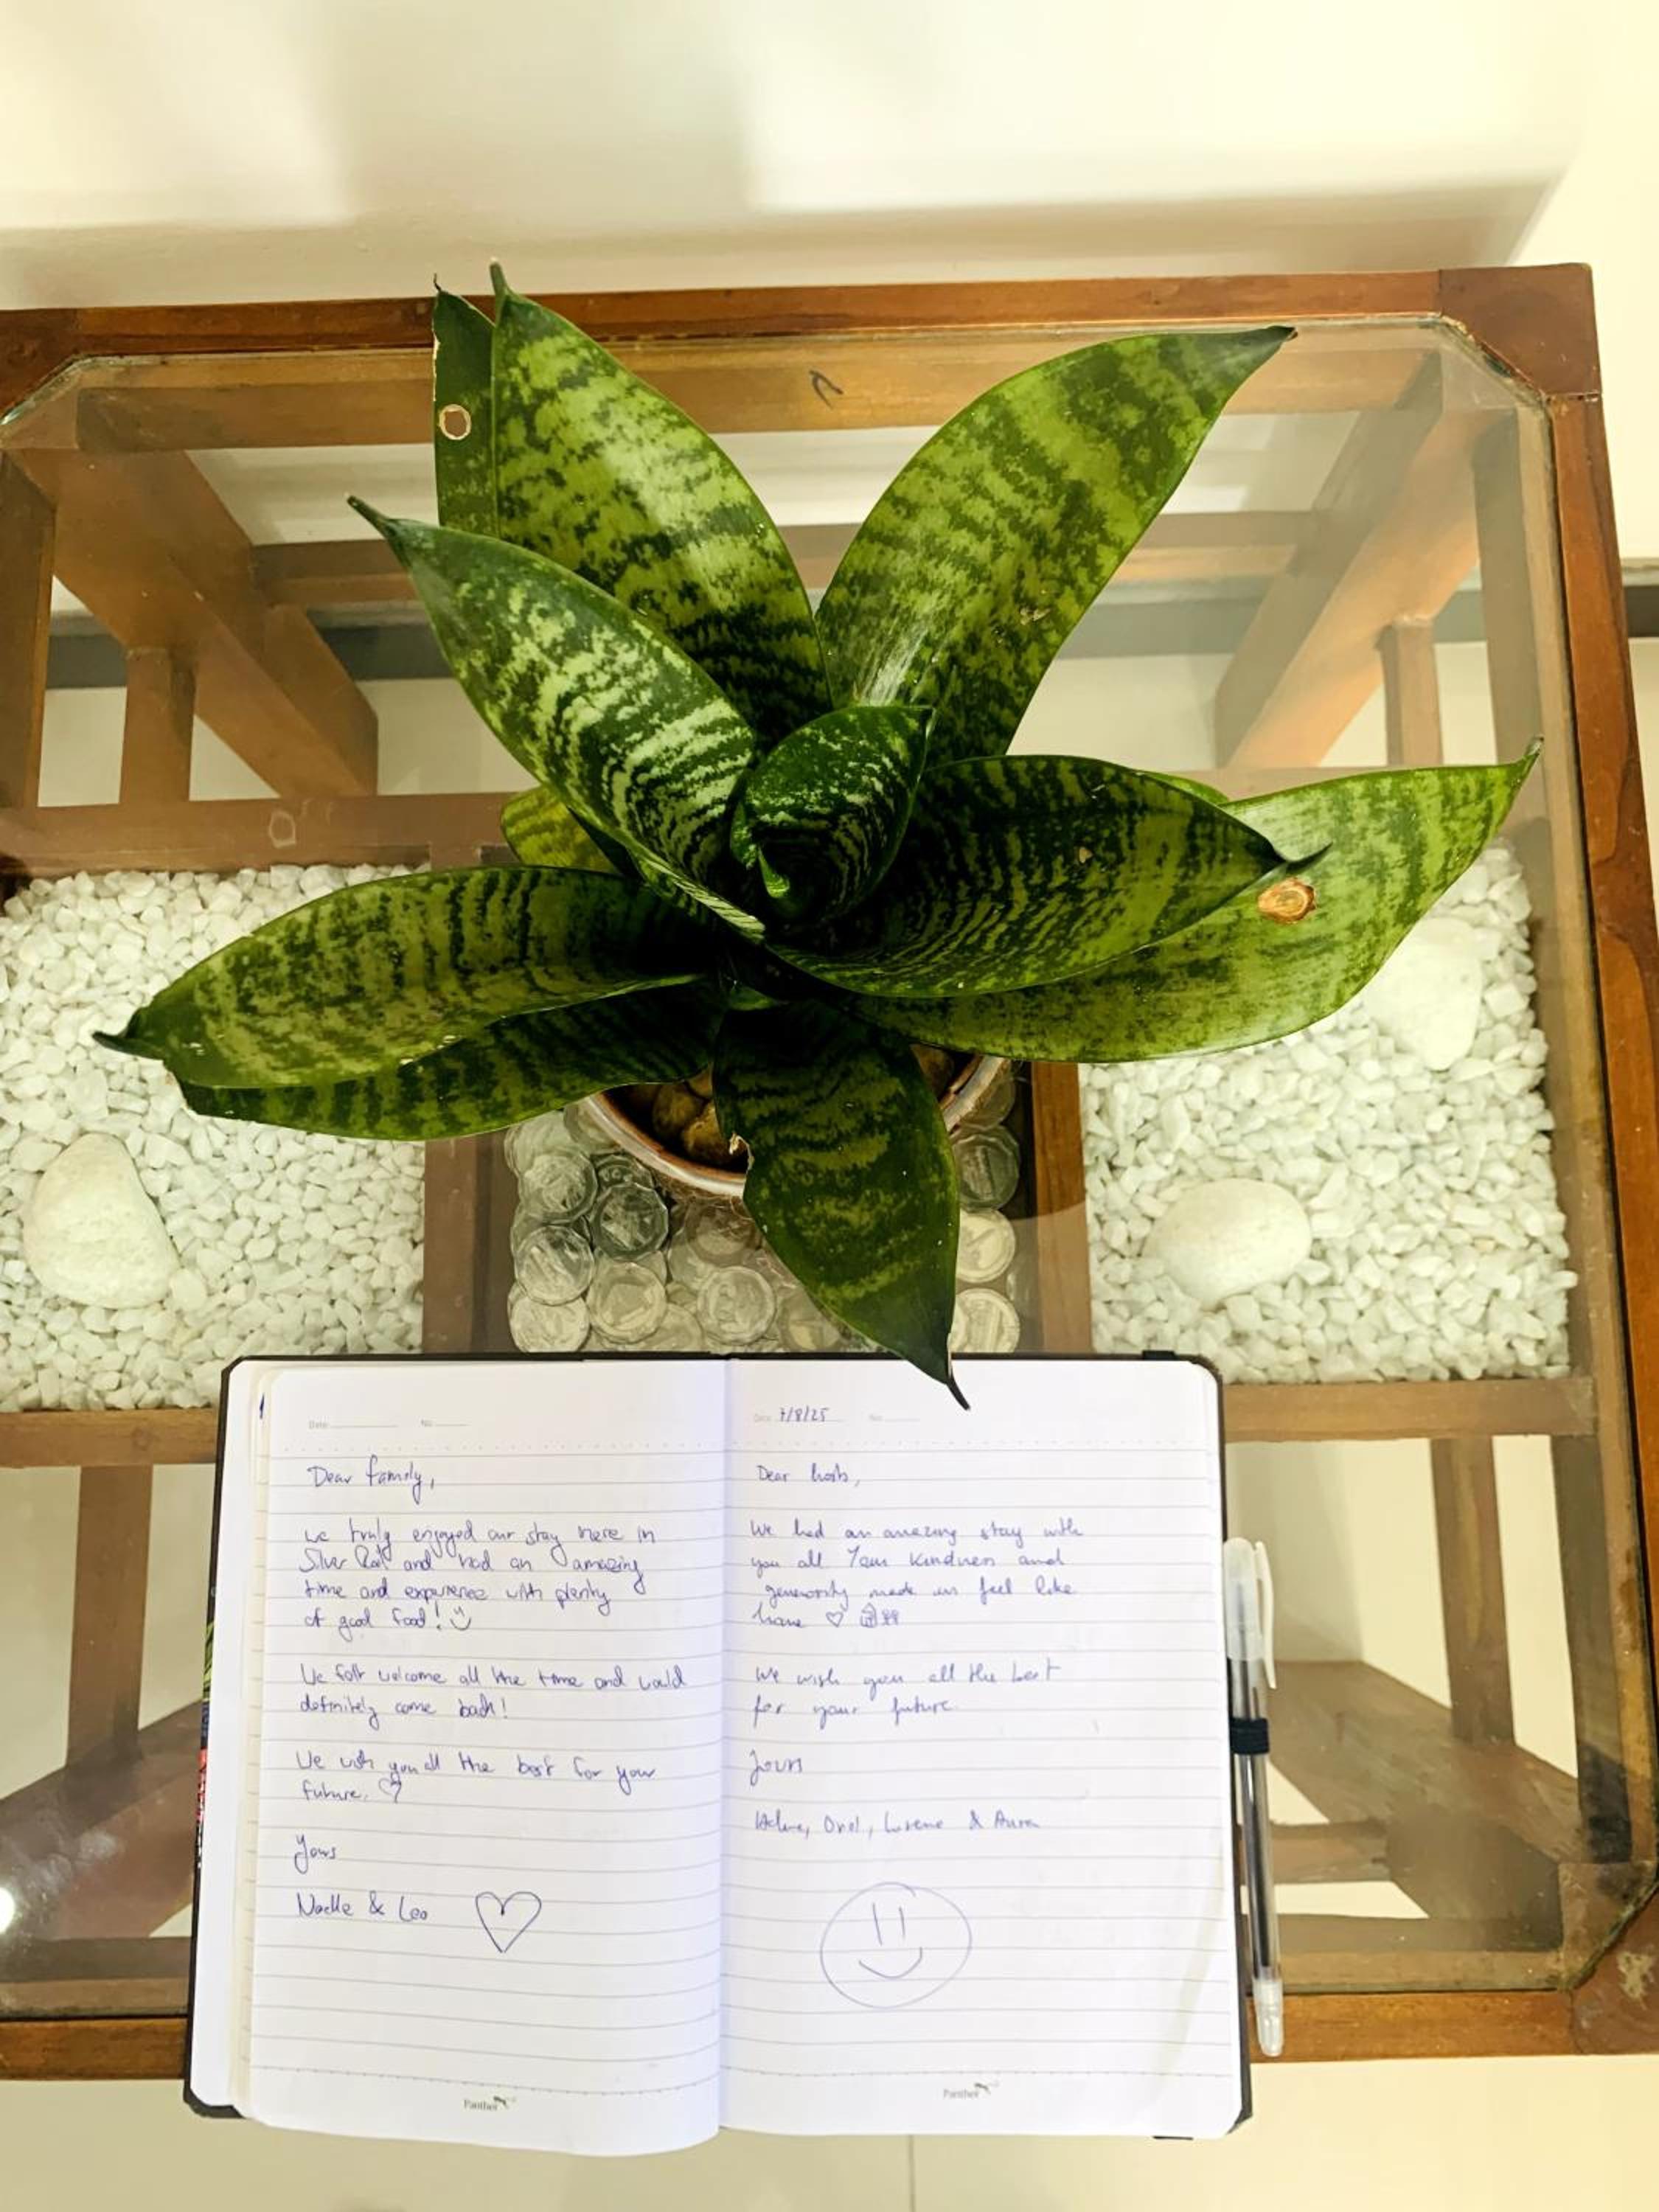 Date: No:
Dear family,
We truly enjoyed our stay here in
Silver and had an amazing
time and experience with plenty
of good food!
We felt welcome all the time and would
definitely come back!
We wish you all the best for your
future.
Yours
Noelle & Leo
Panther
Date: 7/8/25 No:
Dear hosts,
We had an amazing stay with
you all. Your kindness and
generosity made us feel like
home
We wish you all the best
for your future
Yours
& 
Panther